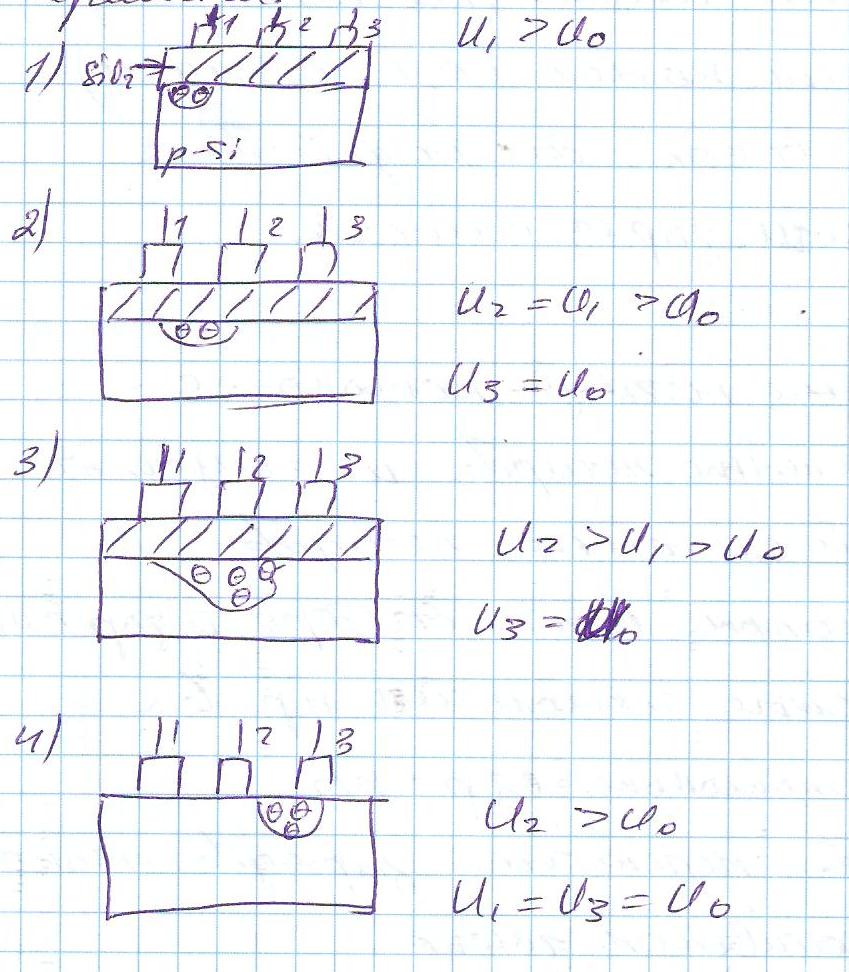 1 2 3 U₁ > U₀
1) SiO₂
p-Si
2) 1 2 3
U₂ = U₁ > U₀
U₃ = U₀
3) 1 2 3
U₂ > U₁ > U₀
U₃ = U₀
4) 1 2 3
U₂ > U₀
U₁ = U₃ = U₀